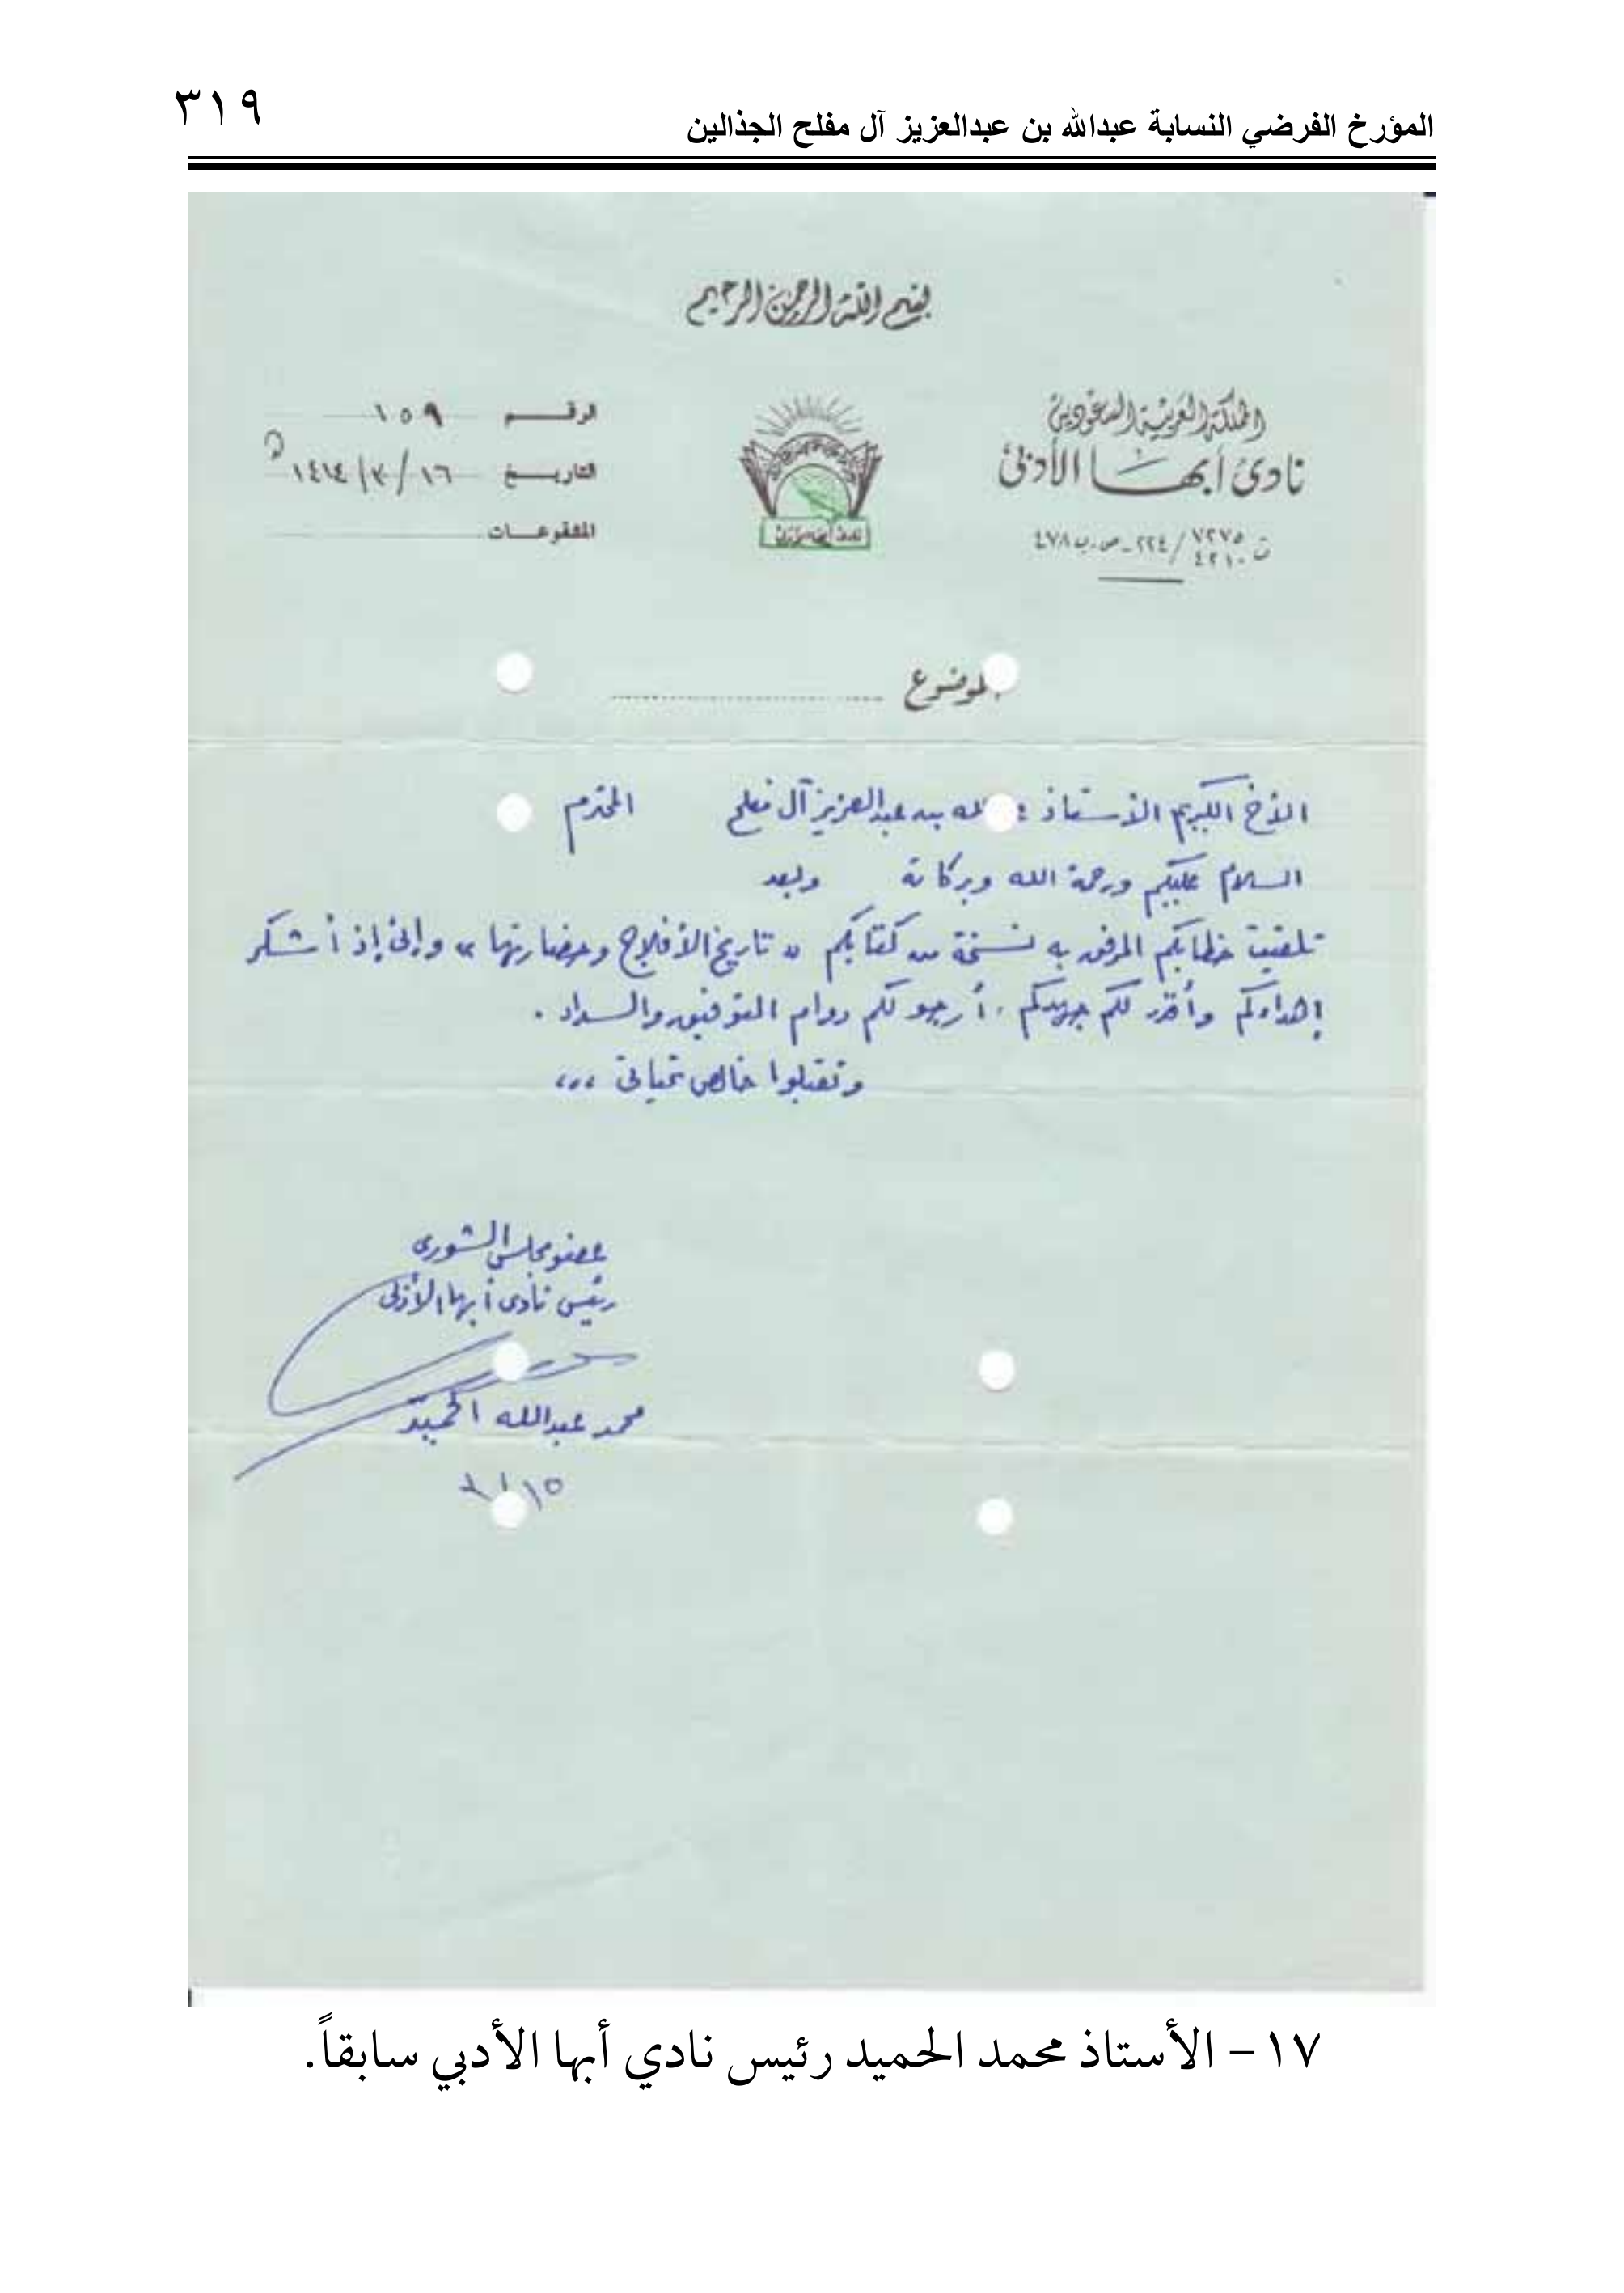 المؤرخ الفرضي النسابة عبدالله بن عبدالعزيز آل مفلح الجذالين
٣١٩
بسم الله الرحمن الرحيم
المملكة العربية السعودية
نادي أبها الأدبي
ت ٧٢٧٥ / ٢٢٤ - ص.ب ٤٧٨
٤٢١٠
الرقم ١٥٩
التاريخ ١٦/٣/١٤١٤ هـ
المشفوعات
الموضوع
الأخ الكريم الأستاذ : لله بن عبدالعزيز آل مفلح المحترم
السلام عليكم ورحمة الله وبركاته وبعد
تلقيت خطابكم المرفق به نسخة من كتابكم « تاريخ الأفلاج وحضارتها » وإني إذ أشكر
إهداءكم وأقدر لكم جهدكم . أرجو لكم دوام التوفيق والسداد .
وتقبلوا خالص تحياتي ،،،
عضو مجلس الشورى
رئيس نادي أبها الأدبي
محمد عبدالله الحميد
١٥/٣
١٧ – الأستاذ محمد الحميد رئيس نادي أبها الأدبي سابقاً.